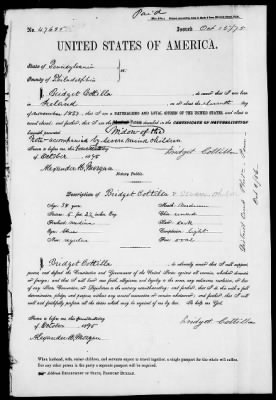 Paid
No. 47695 Issued Oct 15/75
UNITED STATES OF AMERICA.
State of Pennsylvania
County of Philadelphia } ss.
I Bridget Cottilla do swear that I was born
in Ireland on or about the eleventh day of
November, 1837; that I am a NATURALIZED AND LOYAL CITIZEN OF THE UNITED STATES, and about to
travel abroad; and further, that I am the
Widow of the
accompanied by Seven minor children
Sworn to before me, this fourteenth day
of October 1875
Bridget Cottilla
Alexander H. Morgan
Notary Public.
Description of Bridget Cottilla &
Age: 38 years
Stature: 5 feet 2 inches, Eng.
Forehead: medium
Eyes: blue
Nose: regular
Mouth: medium
Chin: round
Hair: dark
Complexion: light
Face: oval
I, Bridget Cottilla do solemnly swear that I will support,
protect, and defend the Constitution and Government of the United States against all enemies, whether domestic
or foreign; and that I will bear true faith, allegiance, and loyalty to the same, any ordinance, resolution, or law
of any State, Convention, or Legislature to the contrary notwithstanding; and further, that I do this with a full
determination, pledge, and purpose, without any mental reservation or evasion whatsoever; and further, that I will
well and faithfully perform all the duties which may be required of me by law. So help me God.
Sworn to before me, this fourteenth day
of October 1875
Bridget Cottilla
Alexander H. Morgan
When husband, wife, minor children, and servants expect to travel together, a single passport for the whole will suffice.
For any other person in the party a separate passport will be required.
Address DEPARTMENT OF STATE, PASSPORT BUREAU.